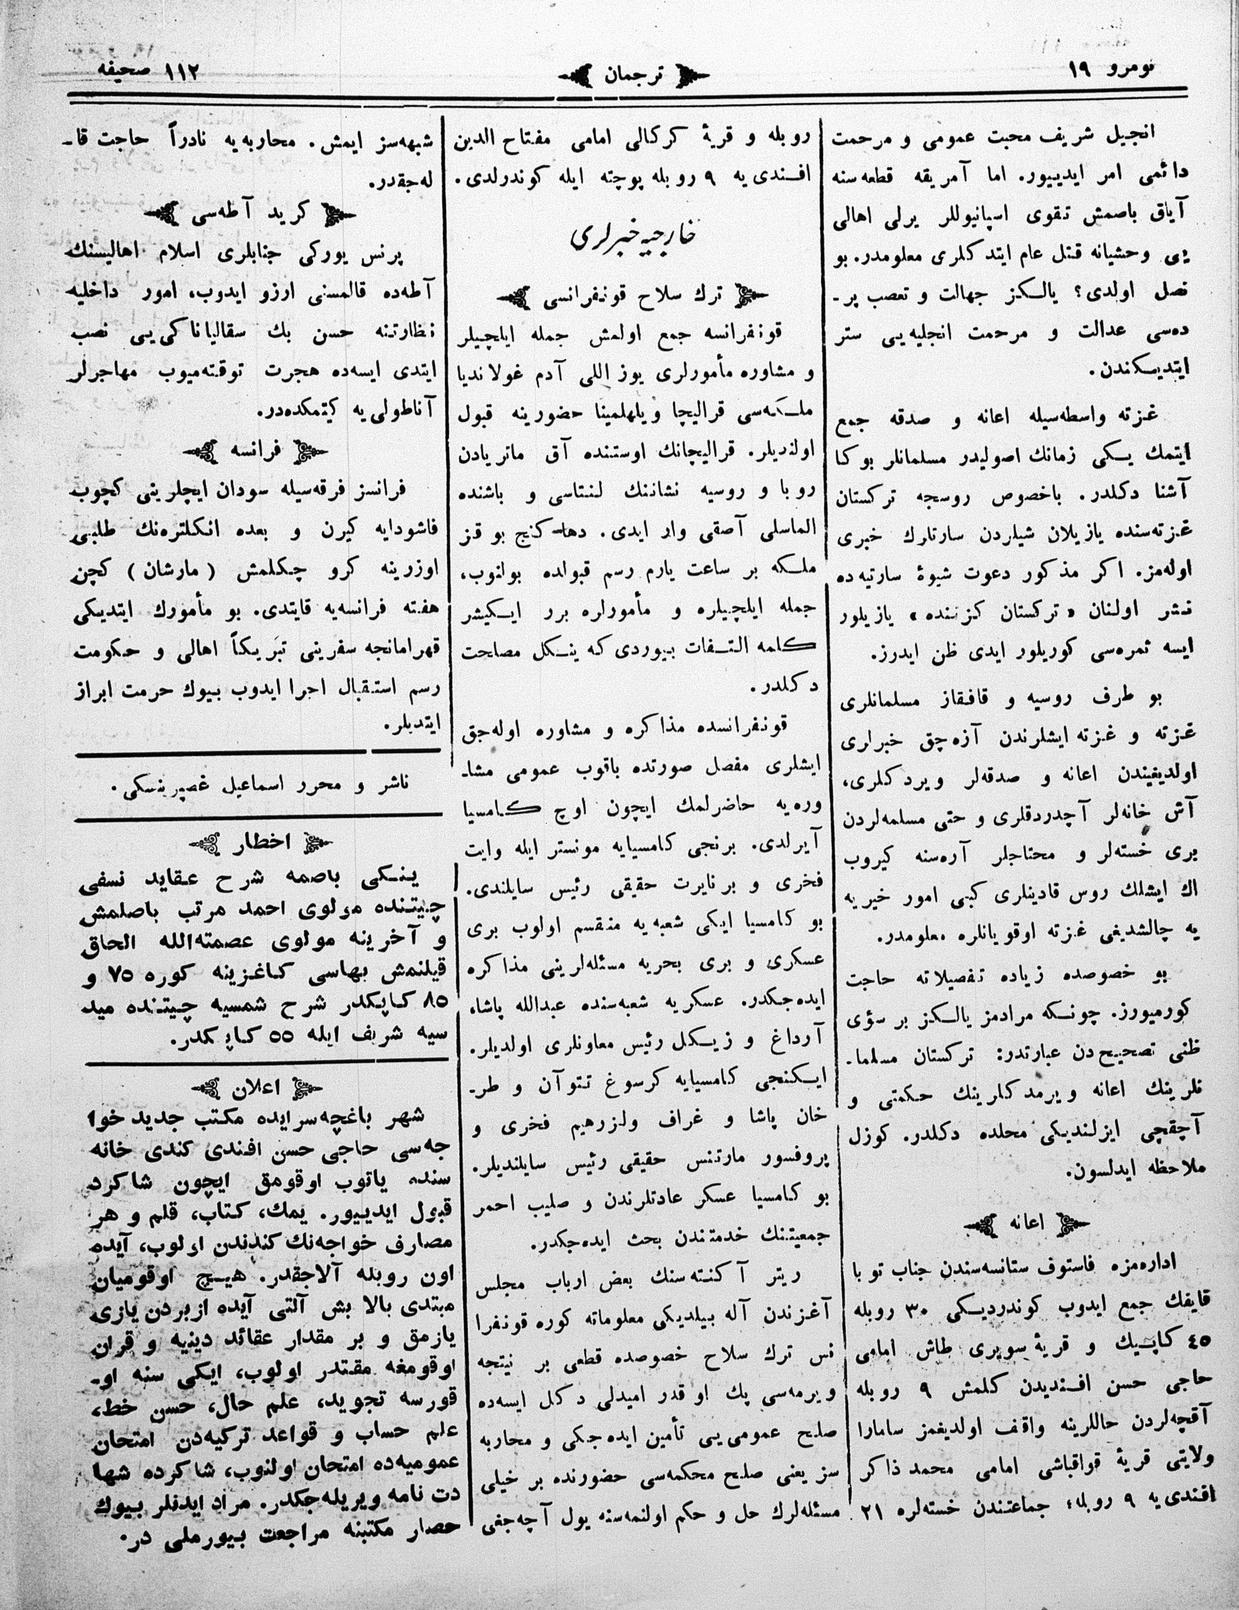 نومرو ١٩
ترجمان
١١٢ صحیفه
انجیل شریف محبت عمومی و مرحمت
دائمی امر ایدییور. اما آمریقه قطعه‌سنه
آیاق باصمش تقوی اسپانیوللر یرلی اهالی
یی وحشیانه قتل عام ایتدکلری معلومدر. بو
نصل اولدی؟ یالکز جهالت و تعصب پر-
ده‌سی عدالت و مرحمت انجلیه‌یی ستر
ایتدیکندن.
غزته واسطه‌سیله اعانه و صدقه جمع
ایتمك یکی زمانك اصولیدر مسلمانلر بوکا
آشنا دکلدر. باخصوص روسجه ترکستان
غزته‌سنده یازیلان شیلردن سارتلرك خبری
اوله‌مز. اکر مذکور دعوت شیوهٔ سارتیه‌ده
نشر اولنان «ترکستان کزننده» یازیلور
ایسه ثمره‌سی کوریلور ایدی ظن ایدرز.
بو طرف روسیه و قافقاز مسلمانلری
غزته و غزته ایشلرندن آزه‌جق خبرلری
اولدیغیندن اعانه و صدقه‌لر ویردکلری،
آش خانه‌لر آچدردقلری و حتی مسلمه‌لردن
بری خسته‌لر و محتاجلر آره‌سنه کیروب
اك ایشلك روس قادینلری کبی امور خیریه
یه چالشدیغی غزته اوقویانلره معلومدر.
بو خصوصده زیاده تفصیلاته حاجت
کورمیورز. چونکه مرادمز یالکز بر سؤی
ظنی تصحیح‌دن عبارتدر: ترکستان مسلما-
نلرینك اعانه ویرمدکلرینك حکمتی و
آچقچی ایزلندیکی محلده دکلدر. کوزل
ملاحظه ایدلسون.
اعانه
اداره‌مزه فاستوف ستانسه‌سندن جناب توبا
قایفك جمع ایدوب کوندردیکی ٣٠ روبله
٤٥ کاپیك و قریهٔ سوپری طاش امامی
حاجی حسن افندیدن کلمش ٩ روبله
آقچه‌لردن حاللرینه واقف اولدیغمز سامارا
ولایتی قریهٔ قواقباشی امامی محمد ذاکر
افندی‌یه ٩ روبله؛ جماعتندن خسته‌لره ٢١
روبله و قریهٔ کرکالی امامی مفتاح الدین
افندی یه ٩ روبله پوچته ایله کوندرلدی.
خارجیه خبرلری
ترك سلاح قونفرانسی
قونفرانسه جمع اولمش جمله ایلچیلر
و مشاوره مأمورلری یوز اللی آدم غولاندیا
ملکه‌سی قرالیچا ویلهلمینا حضورینه قبول
اولندیلر. قرالیچانك اوستنده آق ماتریادن
روبا و روسیه نشاننك لنتاسی و باشنده
الماسلی آصقی وار ایدی. دها کنج بو قز
ملکه بر ساعت یارم رسم قبولده بولنوب،
جمله ایلچیلره و مأمورلره برر ایکیشر
کلمه التفات بیوردی که ینکل مصلحت
دکلدر.
قونفرانسده مذاکره و مشاوره اوله‌جق
ایشلری مفصل صورتده باقوب عمومی مشا-
وره‌یه حاضرلمك ایچون اوچ کامسیا
آیرلدی. برنجی کامسیایه مونستر ایله وایت
فخری و برنایرت حقیقی رئیس سایلندی.
بو کامسیا ایکی شعبه‌یه منقسم اولوب بری
عسکری و بری بحریه مسئله‌لرینی مذاکره
ایده‌جکدر. عسکریه شعبه‌سنده عبدالله پاشا،
آرداغ و زیکل رئیس معاونلری اولدیلر.
ایکنجی کامسیایه کرسوغ تتوآن و طر-
خان پاشا و غراف ولزرهیم فخری و
پروفسور مارتنس حقیقی رئیس سایلندیلر.
بو کامسیا عسکر عادتلرندن و صلیب احمر
جمعیتنك خدمتندن بحث ایده‌جکدر.
ریتر آکنته‌سنك بعض ارباب مجلس
آغزندن آله بیلدیکی معلوماته کوره قونفرا
نس ترك سلاح خصوصده قطعی بر نیتجه
ویرمه‌سی پك اوقدر امیدلی دکل ایسه‌ده
صلح عمومی‌یی تأمین ایده‌جکی و محاربه
سز یعنی صلح محکمه‌سی حضورنده بر خیلی
مسئله‌لرك حل و حکم اولنمه‌سنه یول آچه‌جغی
شبهه‌سز ایمش. محاربه‌یه نادراً حاجت قا-
له‌جقدر.
کرید آطه‌سی
پرنس یورکی جنابلری اسلام اهالیسنك
آطه‌ده قالمسنی ارزو ایدوب، امور داخلیه
نظارتنه حسن بك سقالیاناکی‌یی نصب
ایتدی ایسه‌ده هجرت توقته‌میوب مهاجرلر
آناطولی‌یه کیتمکده‌در.
فرانسه
فرانسز فرقه‌سیله سودان ایچلرینی کچوب
فاشودایه کیرن و بعده انکلتره‌نك طلبی
اوزرینه کرو چکلمش (مارشان) کچن
هفته فرانسه‌یه قایتدی. بو مأمورك ایتدیکی
قهرامانجه سفرینی تبریکاً اهالی و حکومت
رسم استقبال اجرا ایدوب بیوك حرمت ابراز
ایتدیلر.
ناشر و محرر اسماعیل غصپرینسکی.
اخطار
ینکی باصمه شرح عقاید نسفی
چیتنده مولوی احمد مرتب باصلمش
و آخرینه مولوی عصمته‌الله الحاق
قیلنمش بهاسی کاغزینه کوره ٧٥ و
٨٥ کاپکدر شرح شمسیه چیتنده مید
سیه شریف ایله ٥٥ کاپکدر.
اعلان
شهر باغچه‌سرایده مکتب جدید خوا
جه‌سی حاجی حسن افندی کندی خانه
سنده یاتوب اوقومق ایچون شاکرد
قبول ایدییور. یمك، کتاب، قلم و هر
مصارف خواجه‌نك کندندن اولوب، آیده
اون روبله آلاجقدر. هیچ اوقومیان
مبتدی بالا بش آلتی آیده ازبردن یازی
یازمق و بر مقدار عقائد دینیه و قران
اوقومغه مقتدر اولوب، ایکی سنه او-
قورسه تجوید، علم حال، حسن خط،
علم حساب و قواعد ترکیه‌دن امتحان
عمومیه‌ده امتحان اولنوب، شاکرده شها
دت نامه ویریله‌جکدر. مراد ایدنلر بیوك
حصار مکتبنه مراجعت بیورملی در.